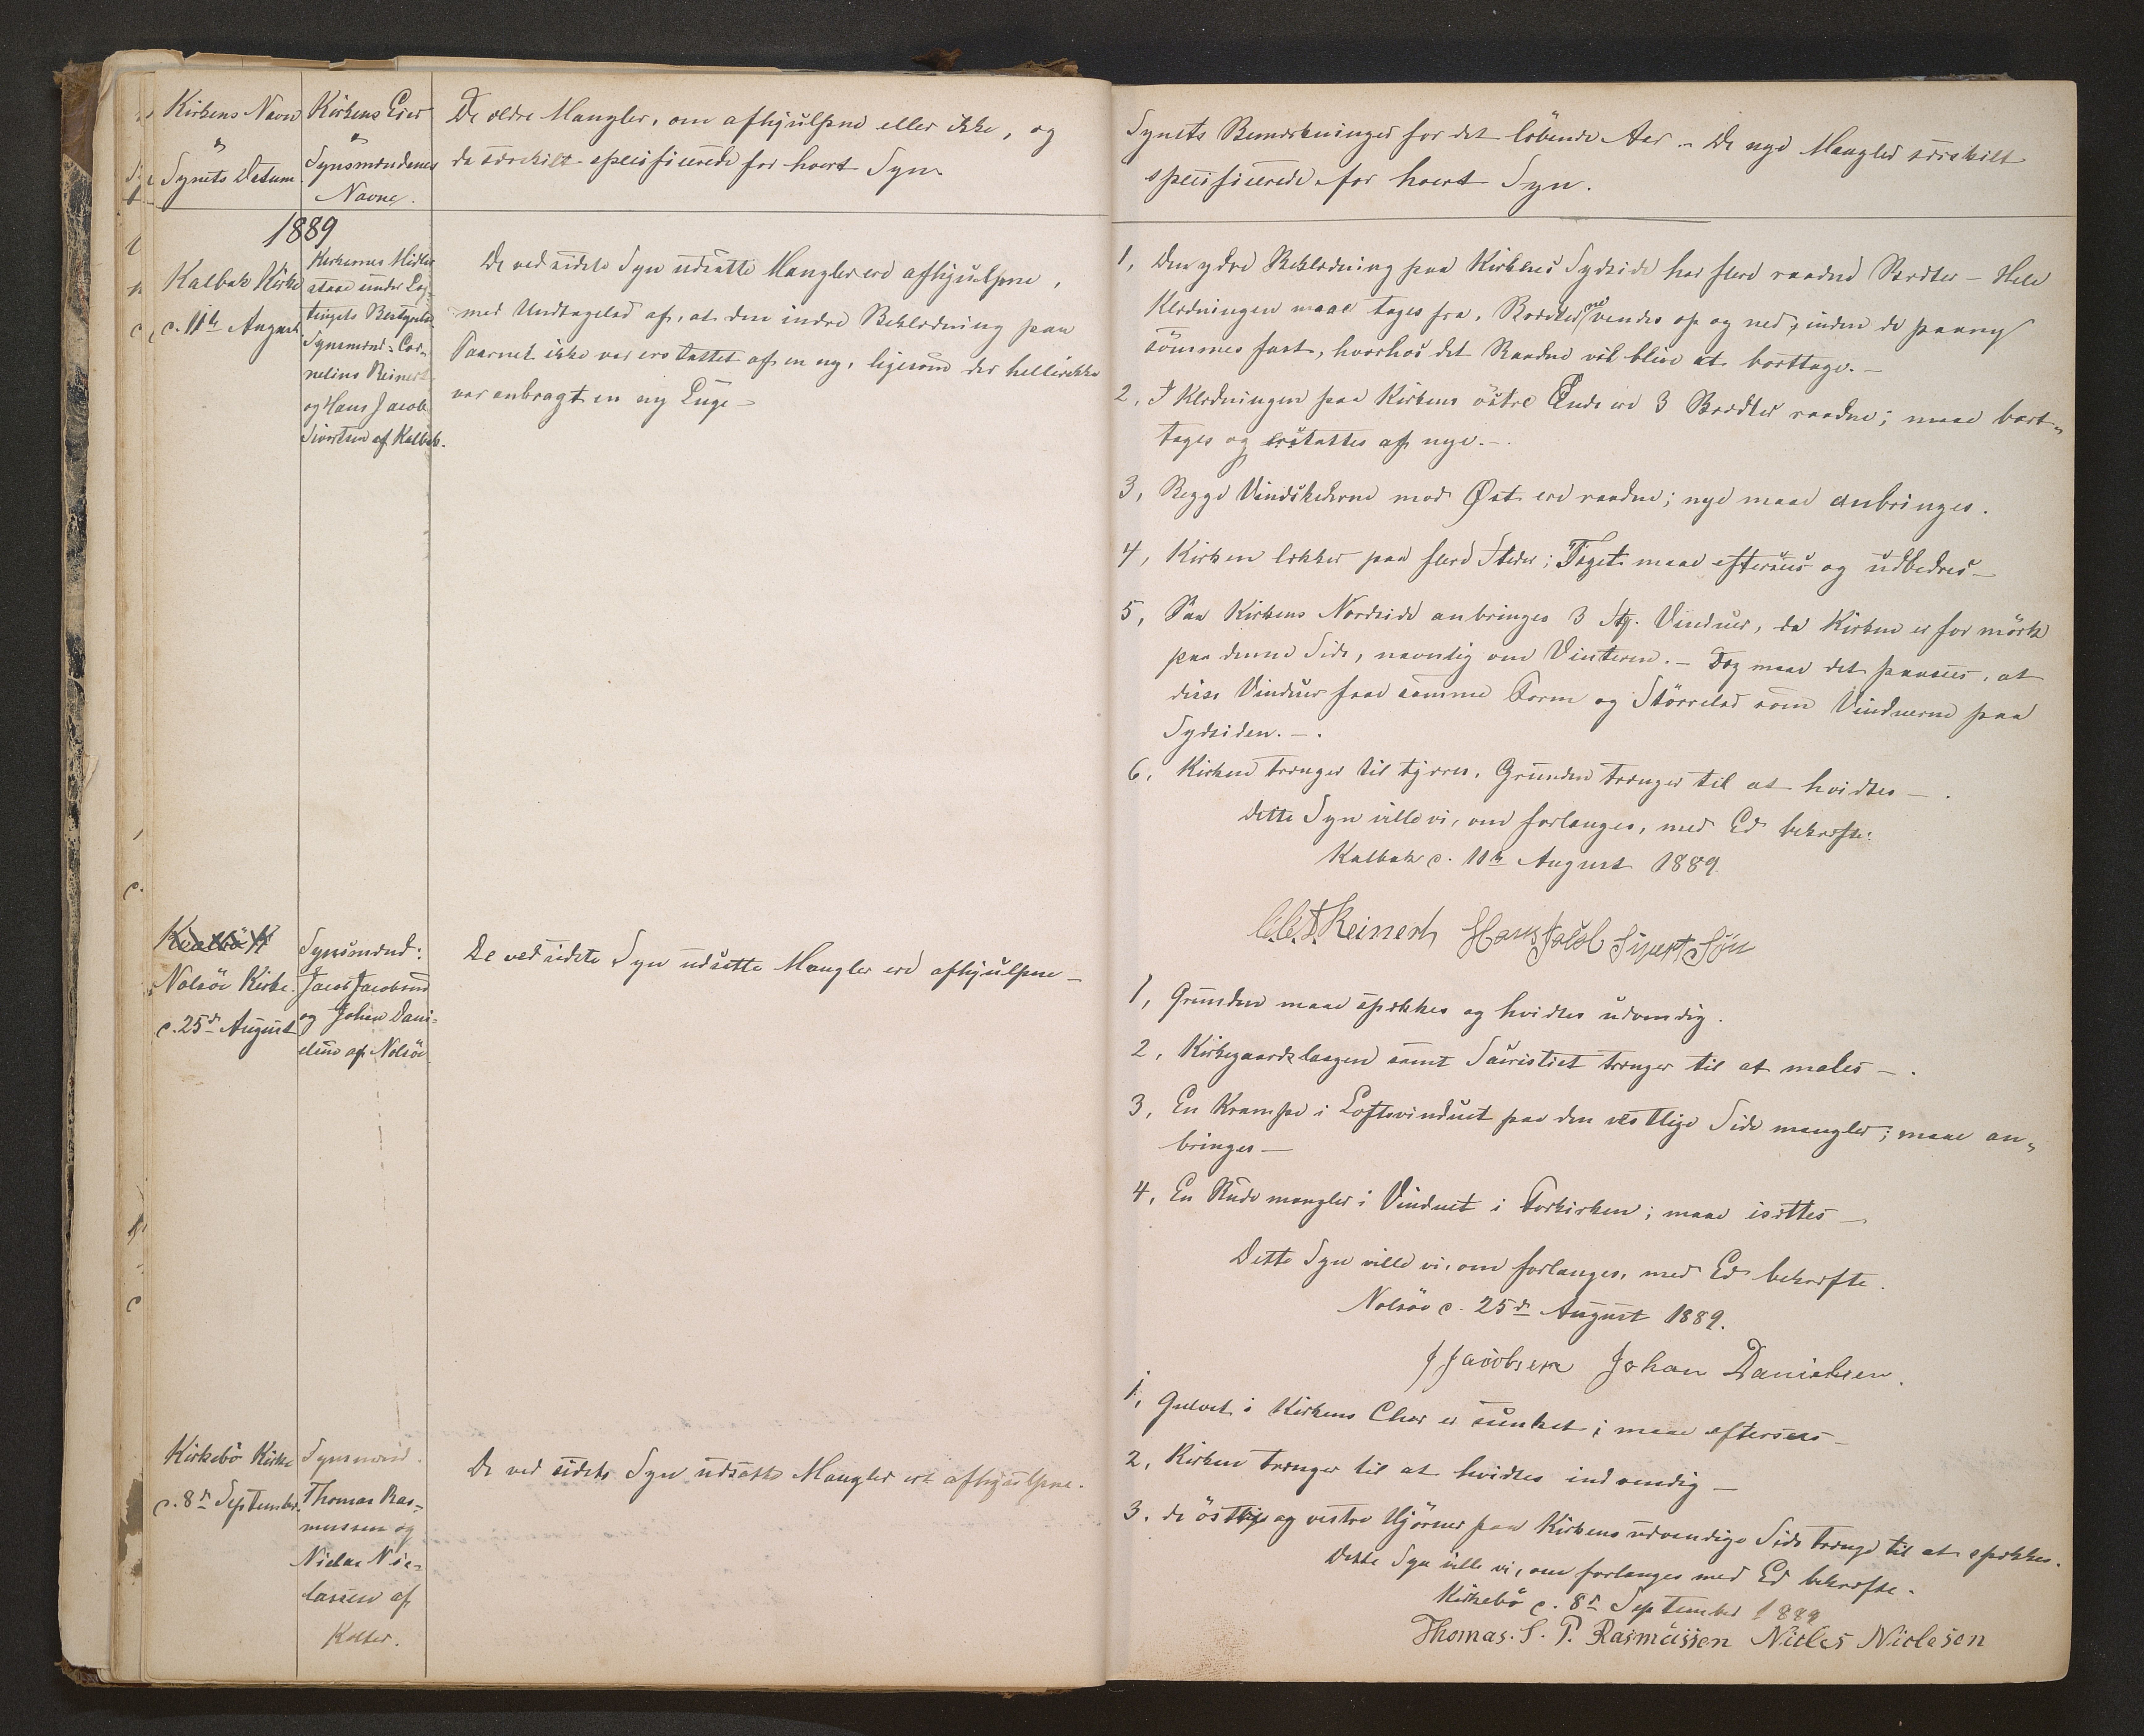 Kirkens Navn
&
Synets Datum
Kirkens Eier
&
Synsmændenes
Navne.
De ældre Mangler, om afhjulpne eller ikke, og
de særskilt specificerede for hvert Syn
1889
Kalbak Kirke
d. 11te August
Kirkernes Midler
staae under Lag-
tingets Bestyrelse
Synsmænd: Cor-
nelius Reinert
og Hans Jacob
Sivertsen af Kalbak.
De ved sidste Syn udsatte Mangler ere afhjulpne,
med Undtagelse af, at den indre Beklædning paa
Taarnet ikke var erstattet af en ny, ligesom der hellerikke
var anbragt en ny Luge –
Nolsöe Kirke.
d. 25de August
Synsmænd:
Jacob Jacobsen
og Johan Dani-
elsen af Nolsöe
De ved sidste Syn udsatte Mangler ere afhjulpne –
Kirkebö Kirke
d. 8de September.
Synsmænd.
Thomas Ras-
mussen og
Niclas Nic-
lassen af
Kolter.
De ved sidste Syn udsatte Mangler ere afhjulpne.
Synets Bemærkninger for det löbende Aar. – De nye Mangler særskilt
specificerede for hvert Syn.
1, Den ydre Beklædning paa Kirkens Sydside har flere raadne Brædter – Hele
Klædningen maae tages fra, Brædterne vendes op og ned, inden de paany
sömmes fast, hvorhos det Raadne vil blive at borttage. –
2, I Klædningen paa Kirkens östre Ende ere 3 Brædter raadne; maae bort-
tages og erstattes af nye. –.
3, Begge Vindskederne mod Øst ere raadne; nye maae anbringes.
4, Kirken lækker paa flere Steder; Taget maae eftersees og udbedres –
5, Paa Kirkens Nordside anbringes 3 Stk. Vinduer, da Kirken er for mörk
paa denne Side, navnlig om Vinteren. – Dog maae det paasees, at
disse Vinduer faae samme Form og Störrelse som Vinduerne paa
Sydsiden. –.
6, Kirken trænger til tjæres, Grunden trænger til at hvidtes –.
Dette Syn ville vi, om forlanges, med Ed bekræfte:
Kalbak d. 11te August 1889.
Reinert Hans Jacob Sivert Sön
1, Grunden maae spækkes og hvidtes udvendig.
2, Kirkegaardslaagen samt Sacristiet trænger til at males –.
3, En Krampe i Loftsvinduet paa den vestlige Side mangler; maae an-
bringes –
4, En Rude mangler i Vinduet i Forkirken; maae isættes –
Dette Syn ville vi, om forlanges, med Ed bekræfte.
Nolsöe d. 25de August 1889.
J Jacobsen Johan Danielsen.
1, Gulvet i Kirkens Chor er sunket; maae eftersees –
2, Kirken trænger til at hvidtes indvendig –
3. de östlige og vestre Hjörner paa Kirkens udvendige Side trænge til at spækkes.
Dette Syn ville vi, om forlanges med Ed bekræfte.
Kirkebö d. 8de September 1889
Thomas. S. P. Rasmüssen Niclas Niclasen